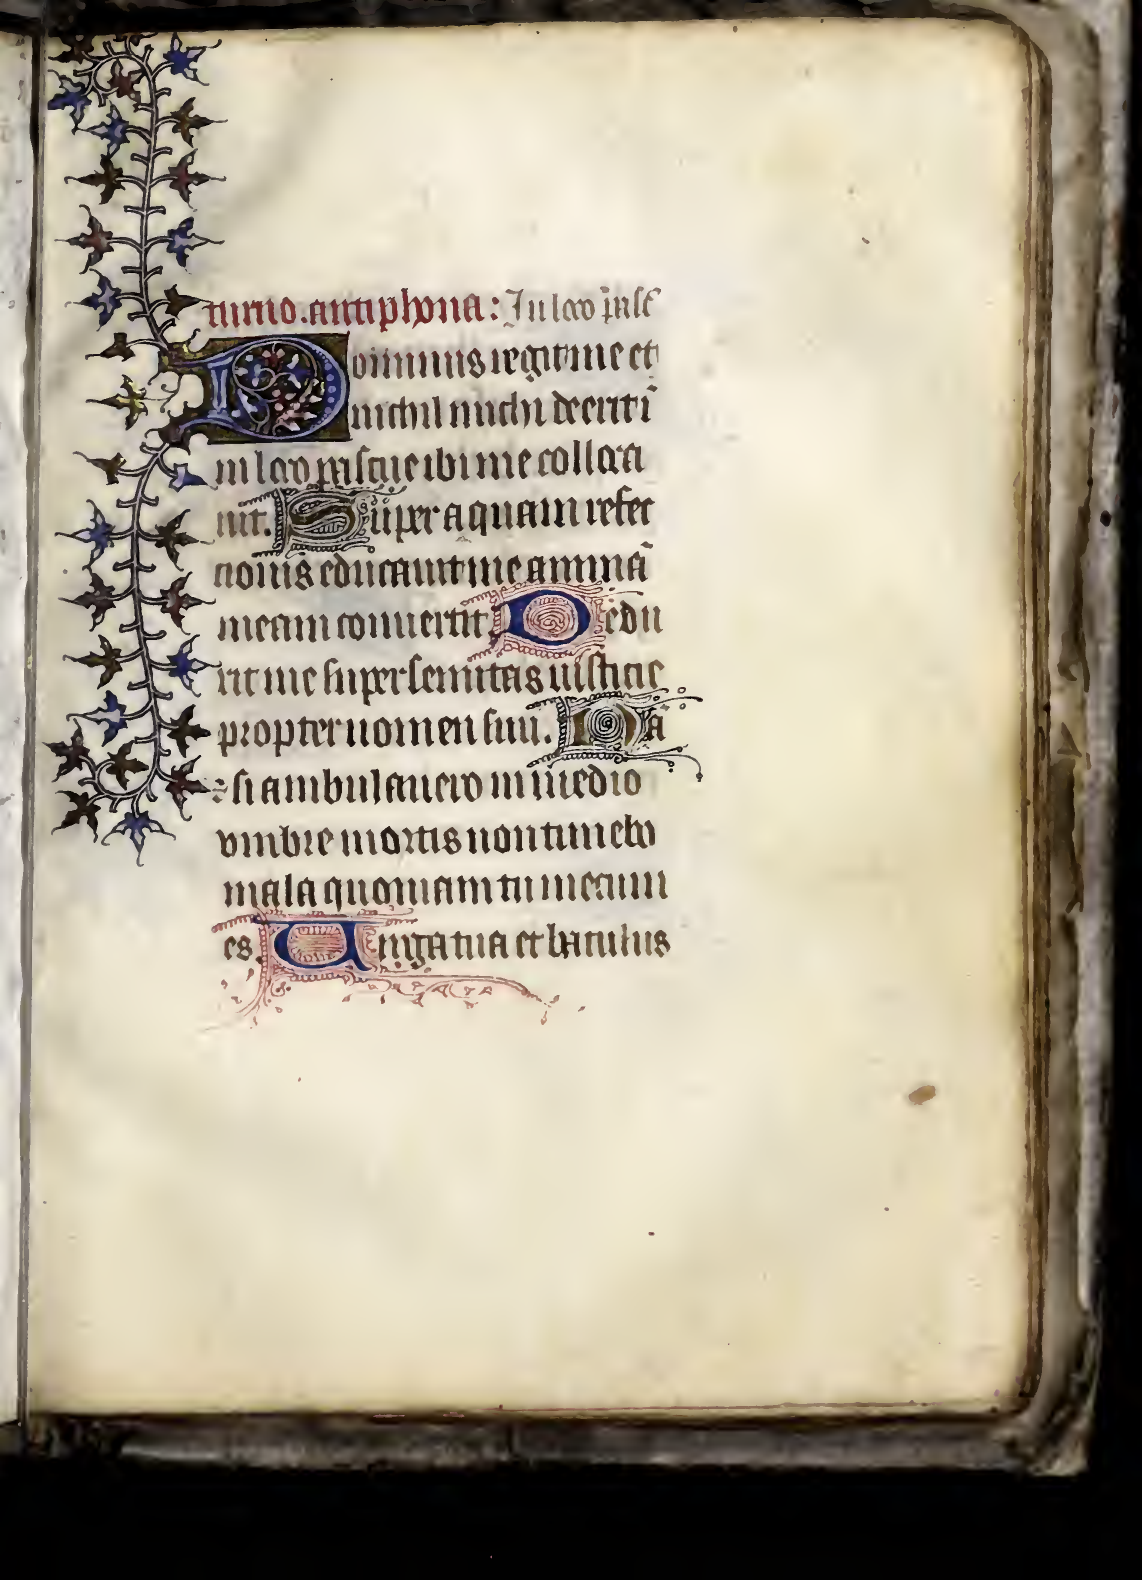 turno. antiphona: In loco pasc̄
Dominus regit me et
nichil michi deerit ī
in loco pascue ibi me colloca
uit. Super aquam refec
tionis educauit me animā
meam conuertit. Dedu
xit me super semitas iusticie
propter nomen suū. Nā
⁊ si ambulauero in medio
vmbre mortis non timebo
mala quoniam tu mecum
es. Uirga tua et baculus